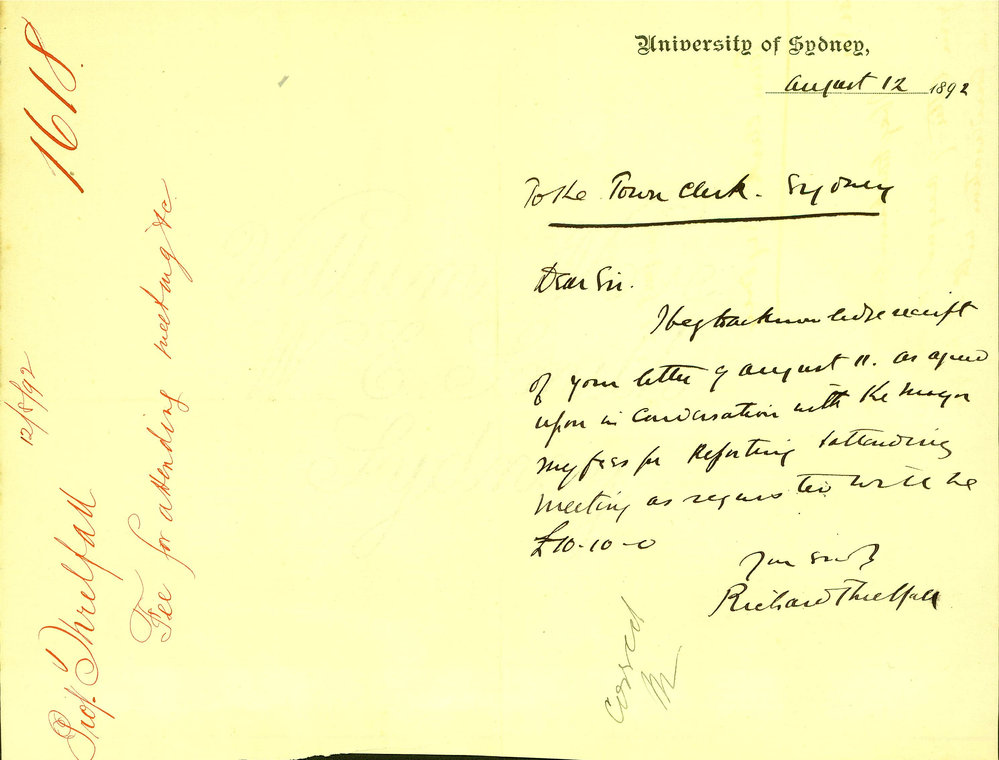 University of Sydney,
August 12 1892
To the Town Clerk. Sydney
Dear Sir.
I beg to acknowledge receipt
of your letter of August 11. As agreed
upon in conversation with the Mayor
my fees for Reporting & attending
meeting as regards this will be
£10-10-0
Your sinc
Richard Threlfall
1618.
12/8/92
Prof. Threlfall
Fee for attending meeting &c